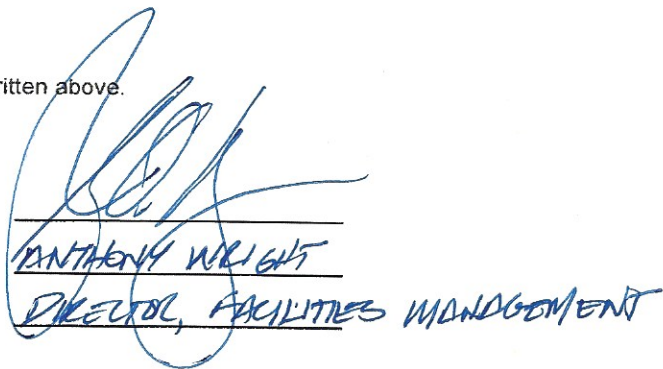 ritten above.
ANTHONY WRIGHT
DIRECTOR, FACILITIES MANAGEMENT